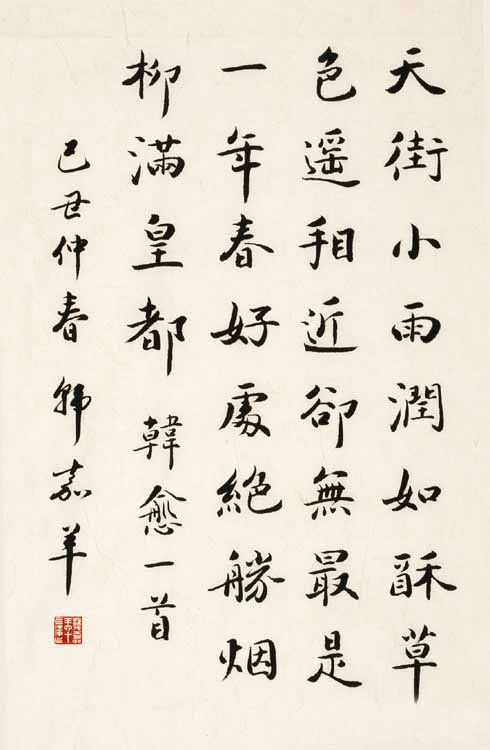 天街小雨潤如酥草
色遥看近卻無最是
一年春好處絕勝烟
柳滿皇都 韓愈一首
己丑仲春 韩嘉羊